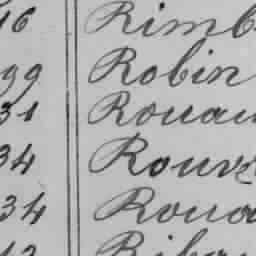 16 Rimb
99 Robin
31 Rouau
34 Rouv
34 Roua
12 Ribau